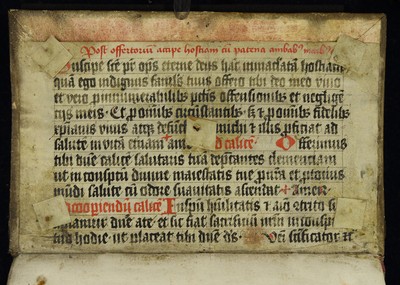 Post offertorium accipe hostiam cu patena ambab' manib'
Suscipe sce pr ops eterne deus hac immaculatam hostiam
qua ego indignus famul's tuus offero tibi deo meo vivo
et vero p innumerabilib's pctis offensionibus et neglige
tiis meis. Et p omnib's circustantib's s; & p omnib's fidelib's
xpianis vivis atq; defuct michi & illis pficiat ad
salute in vita eternam am d calice Offerimus
tibi due calice salutaris tua depcantes clementiam
ut in conspectu divine maiestatis tue p nra et totius
mudi salute cu odore suavitatis ascendat Amen
cooperiendu calice In spu huilitatis & aio ctrito s
amur due a te et sic fiat sacrificiu nrm in conspc
tuo hodie ut placeat tibi due ds scificator et